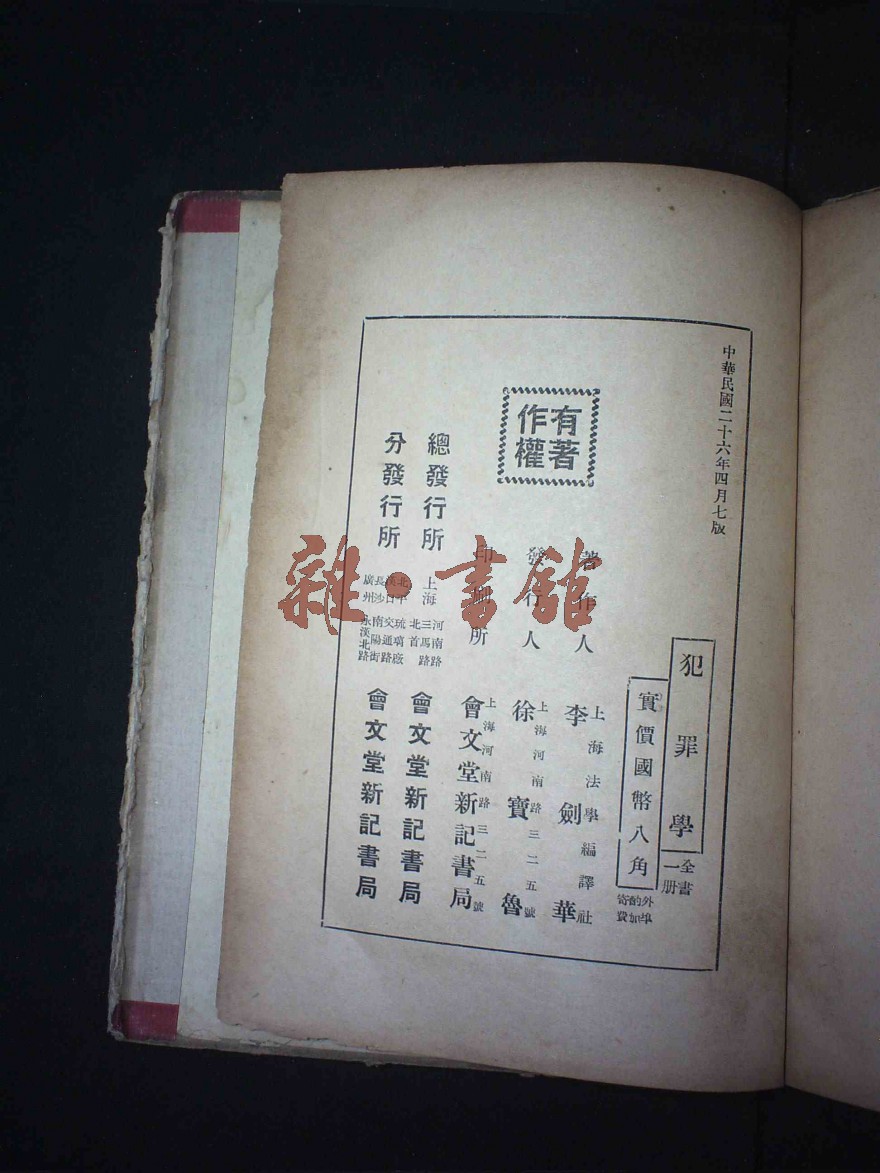 中華民國二十六年四月七版
犯罪學
全書一册
實價國幣八角
外埠酌加寄費
有著作權
著作人
上海法學編譯社
李劍華
發行人
上海河南路三二五號
徐寶魯
印刷所
上海河南路三二五號
會文堂新記書局
總發行所
上海
河南路三馬路北首
會文堂新記書局
分發行所
北平
琉璃廠
漢口
交通路
長沙
南陽街
廣州
永漢北路
會文堂新記書局
雜·書館